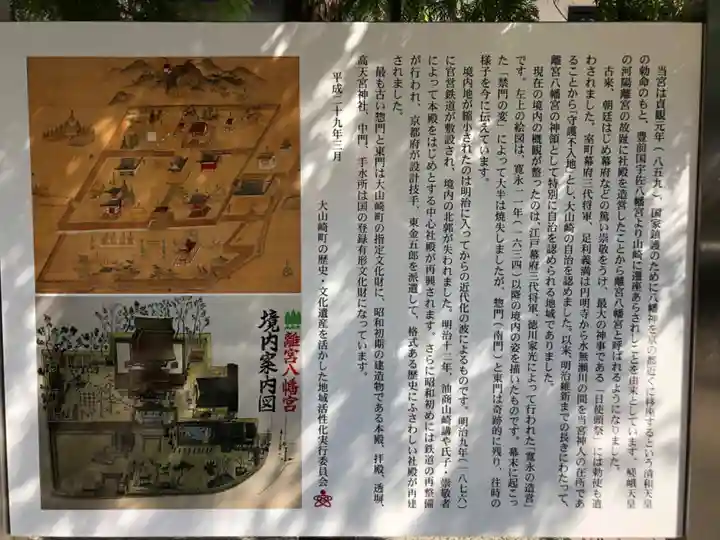 当宮は貞観元年（八五九）、国家鎮護のために八幡神を京の都近くに移座するという清和天皇
の勅命のもと、豊前国宇佐八幡宮より山崎に遷座あらされしことを由来としています。嵯峨天皇
の河陽離宮の故趾に社殿を造営したことから離宮八幡宮と呼ばれるようになりました。
古来、朝廷はじめ幕府などの篤い崇敬をうけ、最大の神事である「日使頭祭」には勅使も遣
わされました。室町幕府三代将軍、足利義満は円明寺から水無瀬川の間を当宮神人の在所であ
ることから「守護不入地」とし、大山崎の自治を認めました。以来、明治維新までの長きにわたって、
離宮八幡宮の神領として特別に自治を認められる地域でありました。
現在の境内の概観が整ったのは、江戸幕府三代将軍、徳川家光によって行われた「寛永の造営」
です。左上の絵図は、寛永一一年（一六三四）以降の境内の姿を描いたものです。幕末に起こっ
た「禁門の変」によって大半は焼失しましたが、惣門（南門）と東門は奇跡的に残り、往時の
様子を今に伝えています。
境内地が縮小されたのは明治に入ってからの近代化の波によるものです。明治九年（一八七六）
に官営鉄道が敷設され、境内の北郭が失われました。明治十二年、油商山崎講や氏子・崇敬者
によって本殿をはじめとする中心社殿が再興されます。さらに昭和初めには鉄道の再整備
が行われ、京都府が設計技手、東金五郎を派遣して、格式ある歴史にふさわしい社殿が再建
されました。
最も古い惣門と東門は大山崎町の指定文化財に、昭和初期の建造物である本殿、拝殿、透塀、
高天宮神社、中門、手水所は国の登録有形文化財になっています。
平成二十九年三月
大山崎町の歴史・文化遺産を活かした地域活性化実行委員会
離宮八幡宮
境内案内図